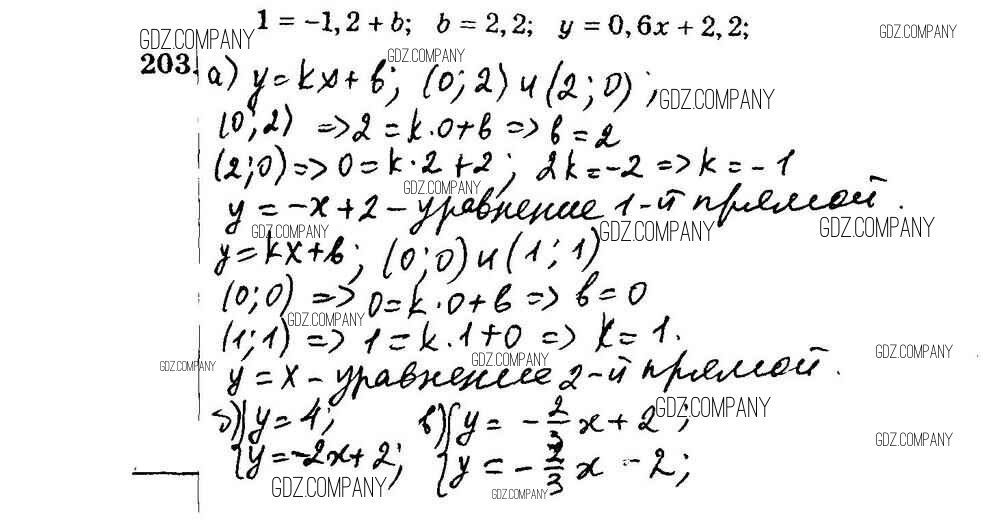 1 = –1,2 + b; b = 2,2; y = 0,6x + 2,2;
GDZ.COMPANY GDZ.COMPANY
203. а) y = kx + b; (0; 2) и (2; 0); GDZ.COMPANY GDZ.COMPANY
(0; 2) => 2 = k·0+b => b = 2
(2; 0) => 0 = k·2+2; 2k = –2 => k = –1
GDZ.COMPANY
y = –x+2 – уравнение 1-й прямой.
GDZ.COMPANY GDZ.COMPANY GDZ.COMPANY
y = kx+b; (0; 0) и (1; 1)
(0; 0) => 0 = k·0+b => b = 0
GDZ.COMPANY
(1; 1) => 1 = k·1+0 => k = 1.
GDZ.COMPANY GDZ.COMPANY GDZ.COMPANY
y = x – уравнение 2-й прямой.
б) { y = 4; в) { y = –2/3 x + 2; GDZ.COMPANY
{ y = –2x+2; { y = –2/3 x – 2; GDZ.COMPANY
GDZ.COMPANY GDZ.COMPANY